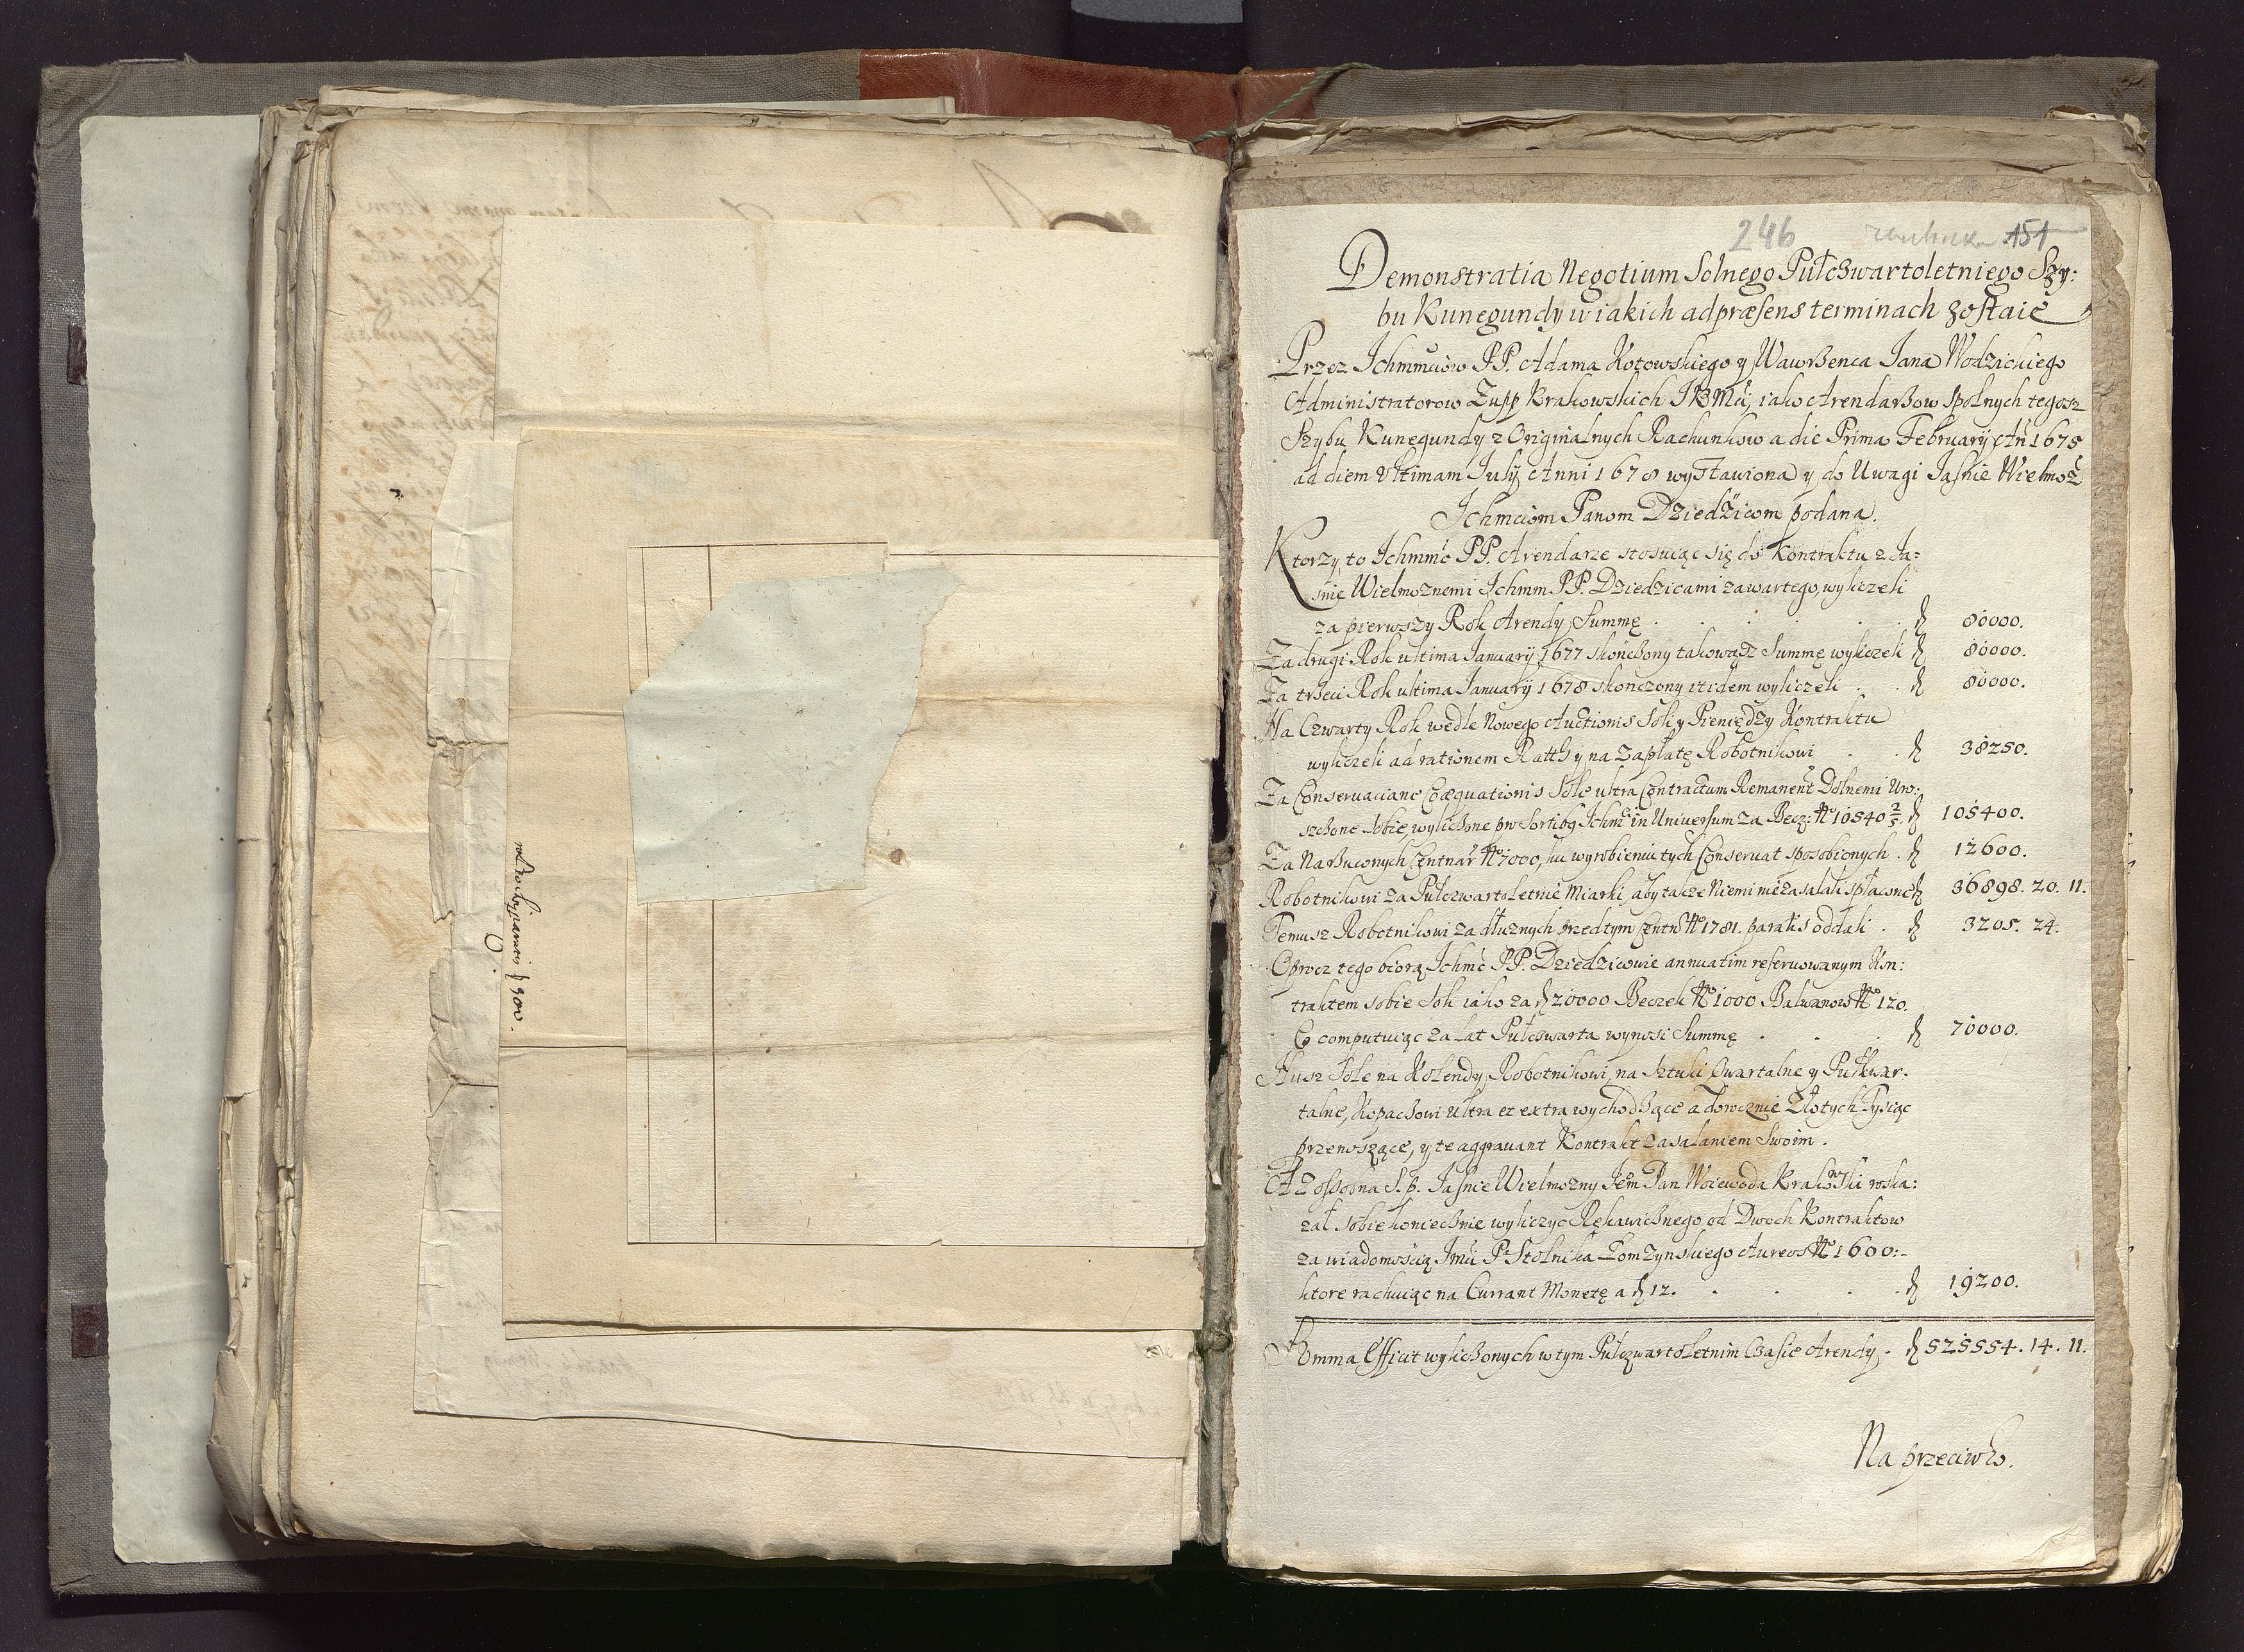 246 151
Demonstratia Negotium Solnego Pułczwartoletniego Szy:
bu Kunegundy w iakich ad præsens terminach zostaie
Przez Ichmmciow PP. Adama Kotowskiego y Wawrzenca Jana Wodzickiego
Administratorow Zupp Krakowskich JKMci, iako Arendarzow spolnych tegosz
Szybu Kunegundy z Originalnych Rachunkow a die Prima Februarij An 1675
ad diem ultimam Julij Anni 1678 wystawiona y do Uwagi Jasnie Wielmoż
Ichmciom Panom Dziedzicom podana.
Ktorzy to Ichmmc PP. Arendarze stosuiąc się do Kontraktu z Ja:
snie Wielmoznemi Ichmm PP. Dziedzicami zawartego, wyliczeli
za pierwszy Rok Arendy Summę . . . 80000.
Za drugi Rok ultima January 1677 skończony takowąsz Summę wyliczeli 80000.
Za trzeci Rok ultima January 1678 skonczony itidem wyliczeli . . 80000.
Na Czwarty Rok wedle Nowego Auctionis Soli y Pieniędzy Kontraktu
wyliczeli ad rationem Ratty y na Zapłatę Robotnikowi . . 38250.
Za Conservacianc Coæquationis Sole ultra Contractum Remanent Dolnemi Uro:
szchone sobie, wyliczone in Universum za Becz: No 10540 2/5. 105400.
Za Narzuconych Centnar No 7000, ku wyrobieniu tych Conservat sposobionych . 12600.
Robotnikowi za Pułczwartoletnie Miarki, aby takze Niemi nie zasalali spłacone 36898. 20. 11.
Temusz Robotnikowi za dłuznych przedtym Centn No 1781. paratis oddali . 3205. 24.
Oprocz tego biorą Ichmc PP. Dziedzicowie annuatim reservowanym Kon:
traktem sobie Soli iako za 20000 Beczek No 1000 Balwanow No 120.
Co computuiąc za lat Pułczwarta wynosi Summę . . . 70000.
Nusz Sole na Kolendy Robotnikowi, na Sztuki Quartalne y Pułkwar.
talne, Kopaczowi ultra et extra wychodzące a dorocznie Złotych Tysiąc
przenoszące, y te aggravant Kontrakt zasalaniem Swoim.
A Zosobna S. p. Jasnie Wielmozny Jem Pan Woiewoda Krakowski roska:
zał sobie koniecznie wyliczyc Rękawicznego od Dwoch Kontraktow
za wiadomoscią Jmci P. Stolnika Łomzynskiego Aureos No 1600:-
ktore rachuiąc na Currant Monetę a 12. . . . 19200.
Summa Efficit wyliczonych w tym Pułczwartoletnim Czasie Arendy . 525554. 14. 11.
Na przeciwko.